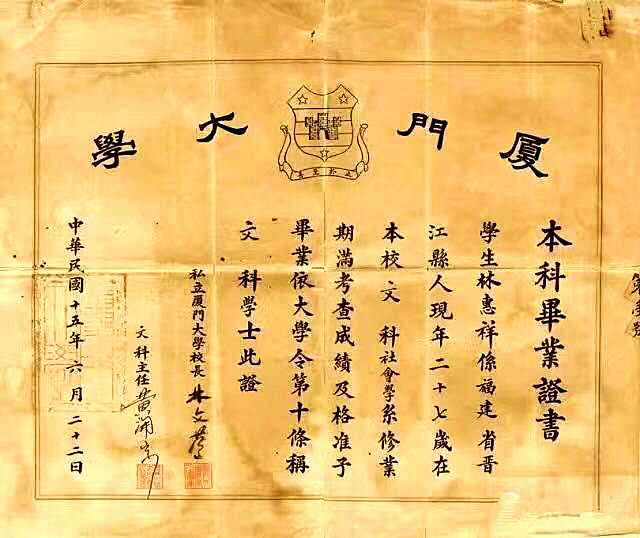 厦門大學
止於至善
本科畢業證書
學生林惠祥係福建省晉
江縣人現年二十七歲在
本校文科社會學系修業
期滿考查成績及格准予
畢業依大學令第十條稱
文科學士此證
私立厦門大學校長 林文慶
文科主任
中華民國十五年六月二十二日